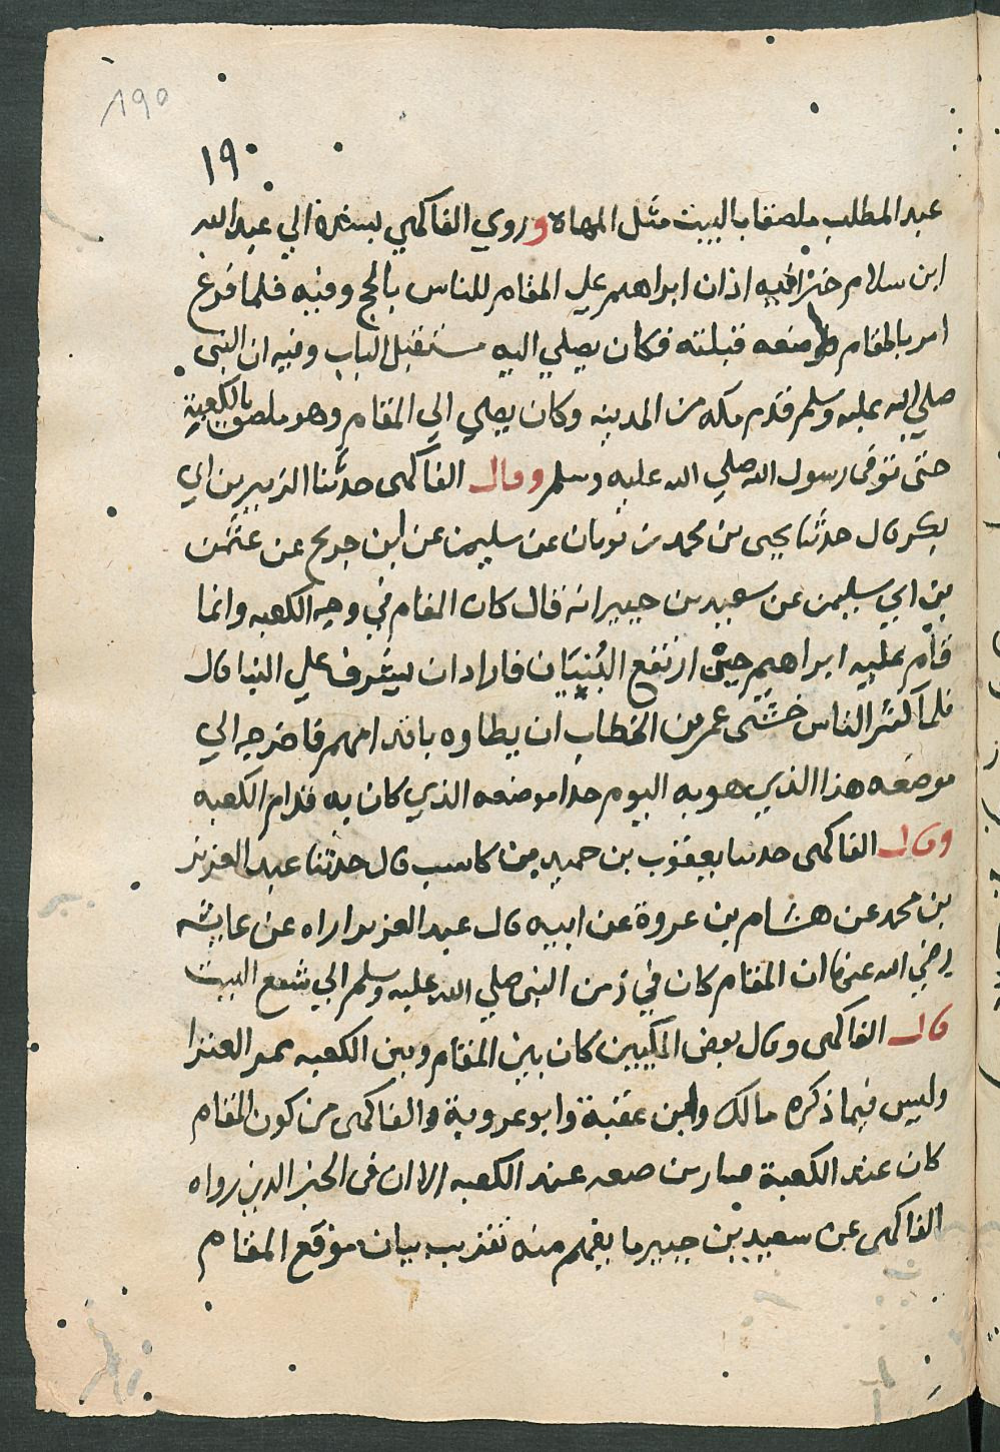 ١٩٥
١٩٠
عبد المطلب ملصقا بالبيت مثل المهاه وروي الفاكهي بسنده الي عبد الله
ابن سلام خبرا فيه اذان ابراهيم علي المقام للناس بالحج وفيه فلما فرغ
امر بالمقام فوضعه قبلته فكان يصلي اليه مستقبل الباب وفيه ان النبي
صلي الله عليه وسلم قدم مكه من المدينه وكان يصلي الي المقام وهو ملصق بالكعبة
حتى توفى رسول الله صلي الله عليه وسلم وقال الفاكهى حدثنا الزبير بن ابي
بكر قال حدثنا يحيى بن محمد بن ثوبان عن سليمن عن ابن جريح عن عثمن
بن ابي سليمن عن سعيد بن جبير انه قال كان المقام في وجه الكعبه وانما
قام عليه ابراهيم حين ارتفع البُنيَان فاراد ان يشرف علي البنا قال
فلما كثر الناس خشى عمر بن الخطاب ان يطاوه باقدامهم فاخرجه الي
موضعه هذا الذي هو به اليوم حذا موضعه الذي كان به قدام الكعبه
وقال الفاكهى حدثنا يعقوب بن حميد بن كاسب قال حدثنا عبد العزيز
بن محمد عن هشام بن عروة عن ابيه قال عبد العزيز اراه عن عايشه
رضي الله عنها ان المقام كان في زمن النبي صلي الله عليه وسلم الي سقع البيت
قال الفاكهى وقال بعض المكيين كان بين المقام وبين الكعبه ممر العنزا
وليس فيما ذكره مالك وابن عقبة وابو عروبة والفاكهى من كون المقام
كان عند الكعبة بيان موضعه عند الكعبه الا ان فى الخبر الذي رواه
الفاكهى عن سعيد بن جبير ما يفهم منه تقريب بيان موقع المقام